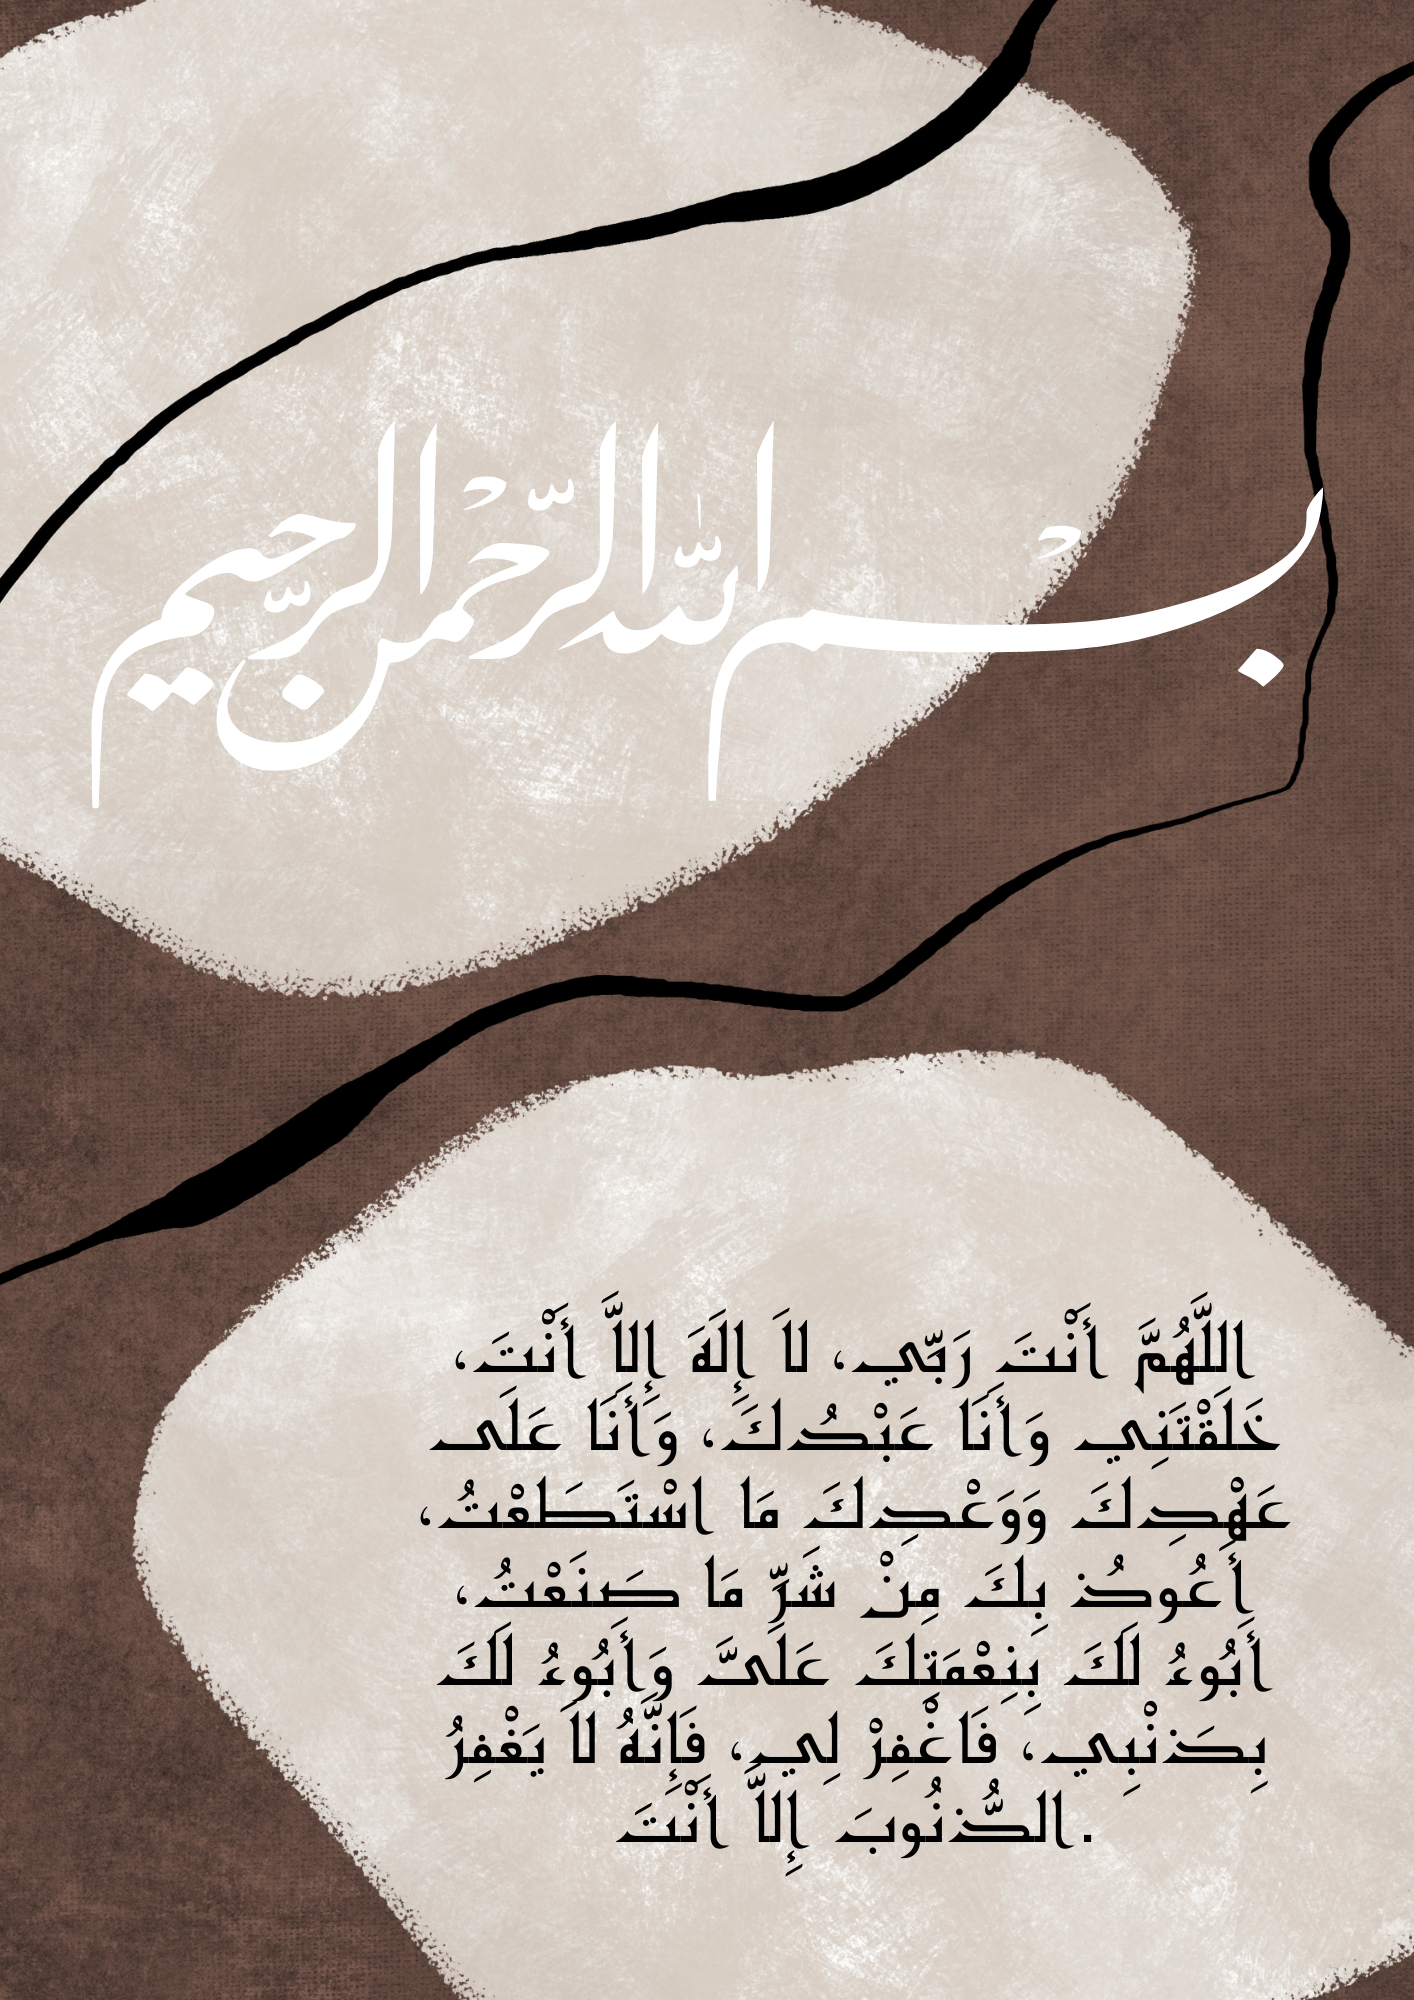 بسم الله الرَّحْمن الرَّحيم
اللَّهُمَّ أَنْتَ رَبِّي، لاَ إِلَهَ إِلاَّ أَنْتَ،
خَلَقْتَنِي وَأَنَا عَبْدُكَ، وَأَنَا عَلَى
عَهْدِكَ وَوَعْدِكَ مَا اسْتَطَعْتُ،
أَعُوذُ بِكَ مِنْ شَرِّ مَا صَنَعْتُ،
أَبُوءُ لَكَ بِنِعْمَتِكَ عَلَىَّ وَأَبُوءُ لَكَ
بِذَنْبِي، فَاغْفِرْ لِي، فَإِنَّهُ لاَ يَغْفِرُ
الذُّنُوبَ إِلاَّ أَنْتَ.